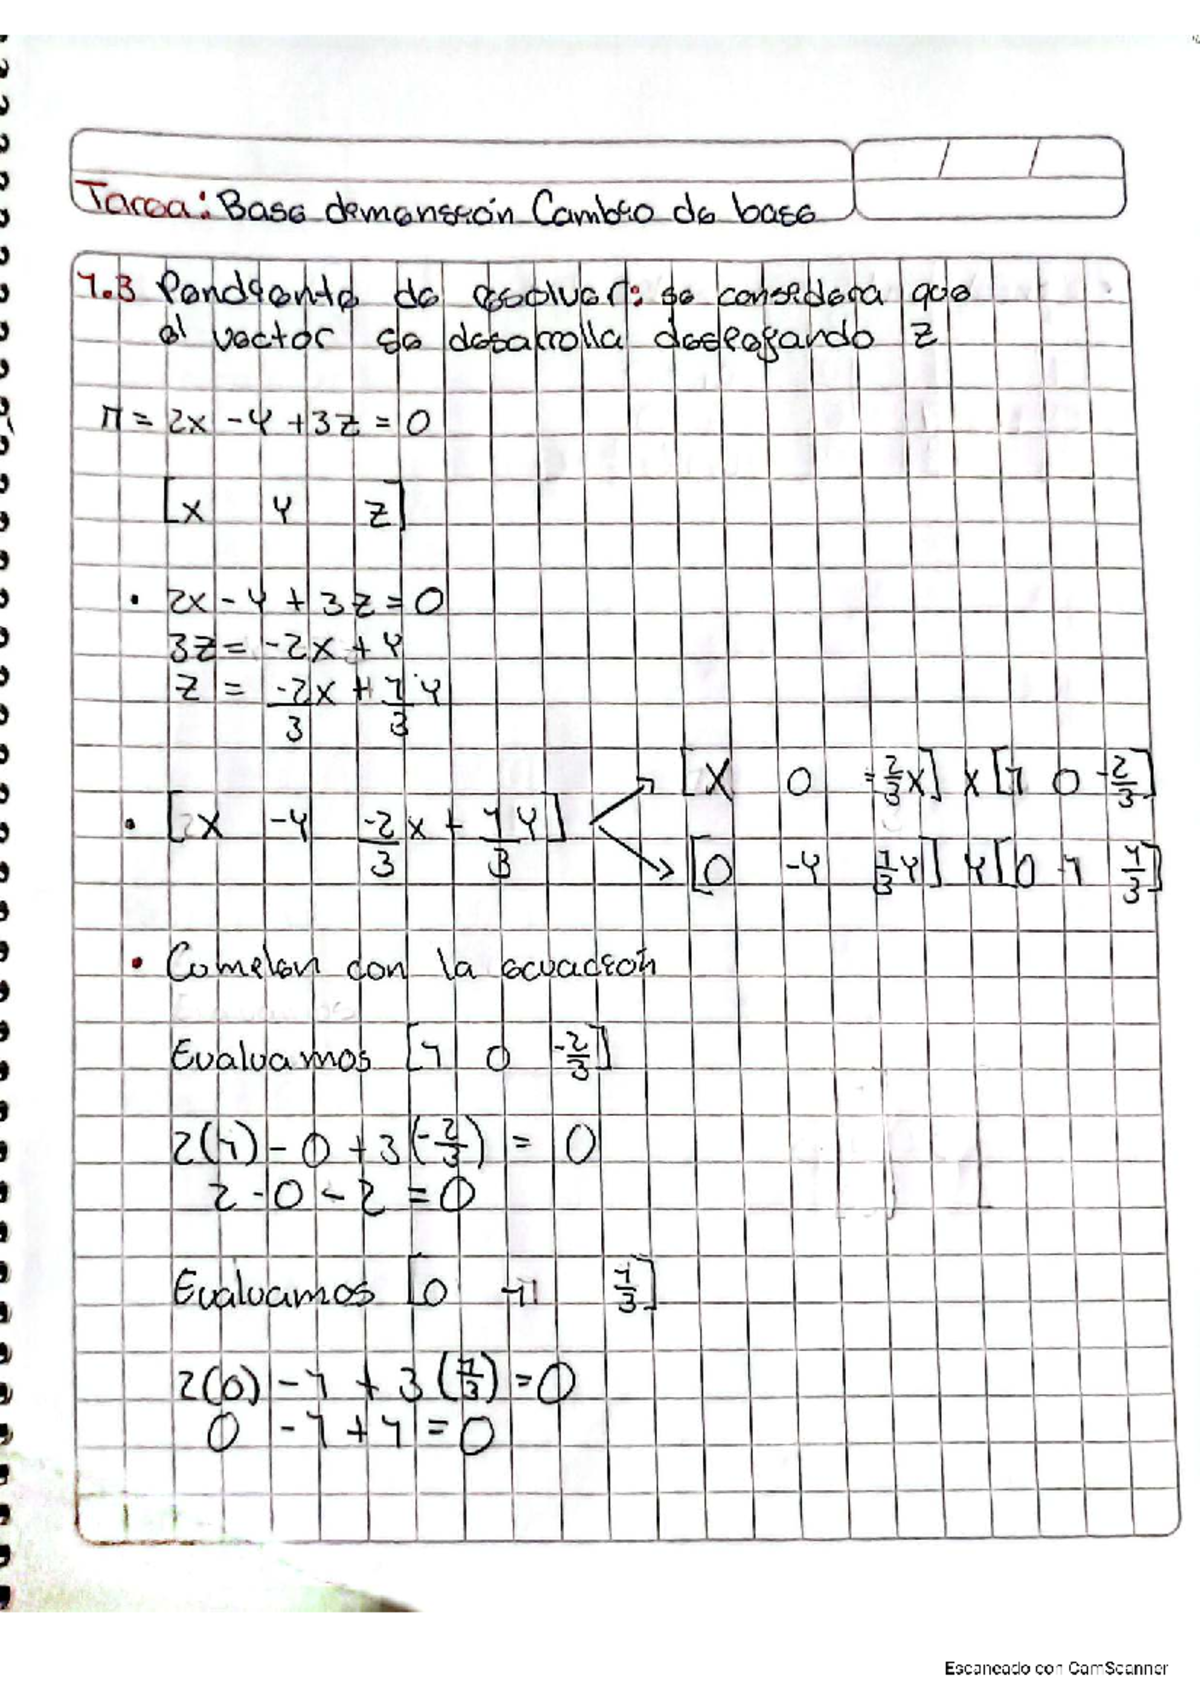 Tarea: Base demensión Cambio de base
1.3 Pendiente de resolver: se considera que
el vector se desarrolla despejando z
π = 2x - y + 3z = 0
[x y z]
• 2x - y + 3z = 0
3z = -2x + y
z = -2/3 x + 1/3 y
[x 0 -2/3 x] x [1 0 -2/3]
• [2x -y -2/3 x + 1/3 y]
[0 -y 1/3 y] y [0 -1 1/3]
• Cumplen con la ecuación
Evaluamos [1 0 -2/3]
2(1) - 0 + 3(-2/3) = 0
2 - 0 - 2 = 0
Evaluamos [0 -1 1/3]
2(0) - 1 + 3(1/3) = 0
0 - 1 + 1 = 0
Escaneado con CamScanner